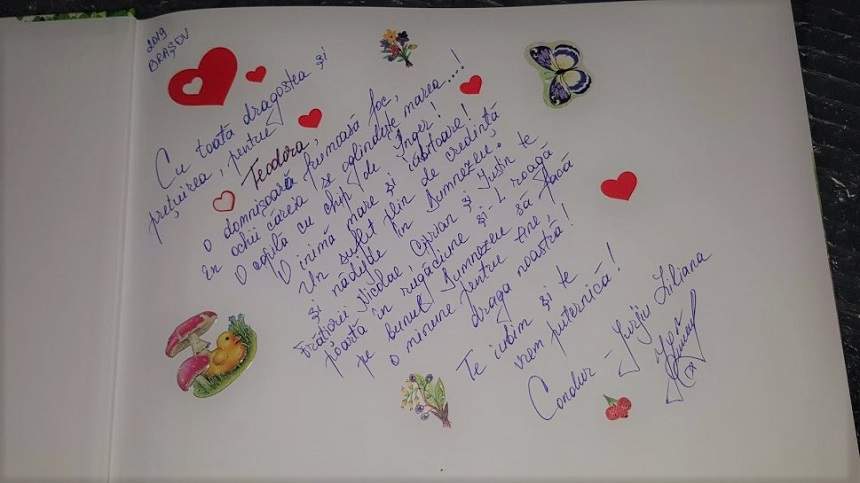 2019
BRAȘOV
Cu toată dragostea și
prețuirea, pentru
Teodora,
o domnișoară frumoasă foc,
în ochii căreia se oglindește marea...!
O copilă cu chip de înger!
O inimă mare și iubitoare!
Un suflet plin de credință
și nădejde în Dumnezeu!
Frățiorii Nicolae, Ciprian și Iustin te
poartă în rugăciune și-L roagă
pe bunul Dumnezeu să facă
o minune pentru tine,
draga noastră!
Te iubim și te
vrem puternică!
Condur - Jurju Liliana